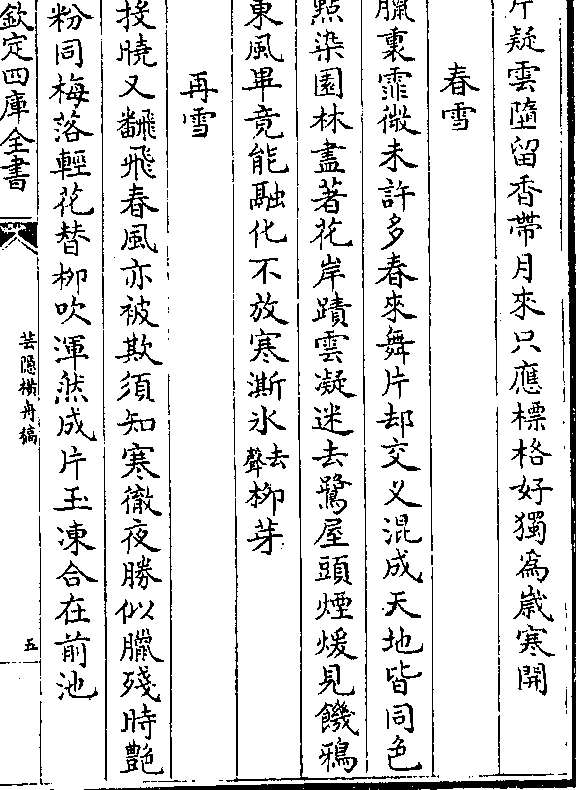 片疑雲墮留香帶月來只應標格好獨為嵗寒開
春雪
臘裏霏微未許多春來舞片却交义混成天地皆同色
點染園林盡著花岸蹟雲凝迷去鷺屋頭煙煖見饑鴉
東風畢竟能融化不放寒澌氷去聲栁芽
再雪
挍曉又飜飛春風亦被欺須知寒徹夜勝似臘殘時艷
粉同梅落輕花替栁吹渾然成片玉凍合在前池
欽定四庫全書
芸隠横舟稿
五